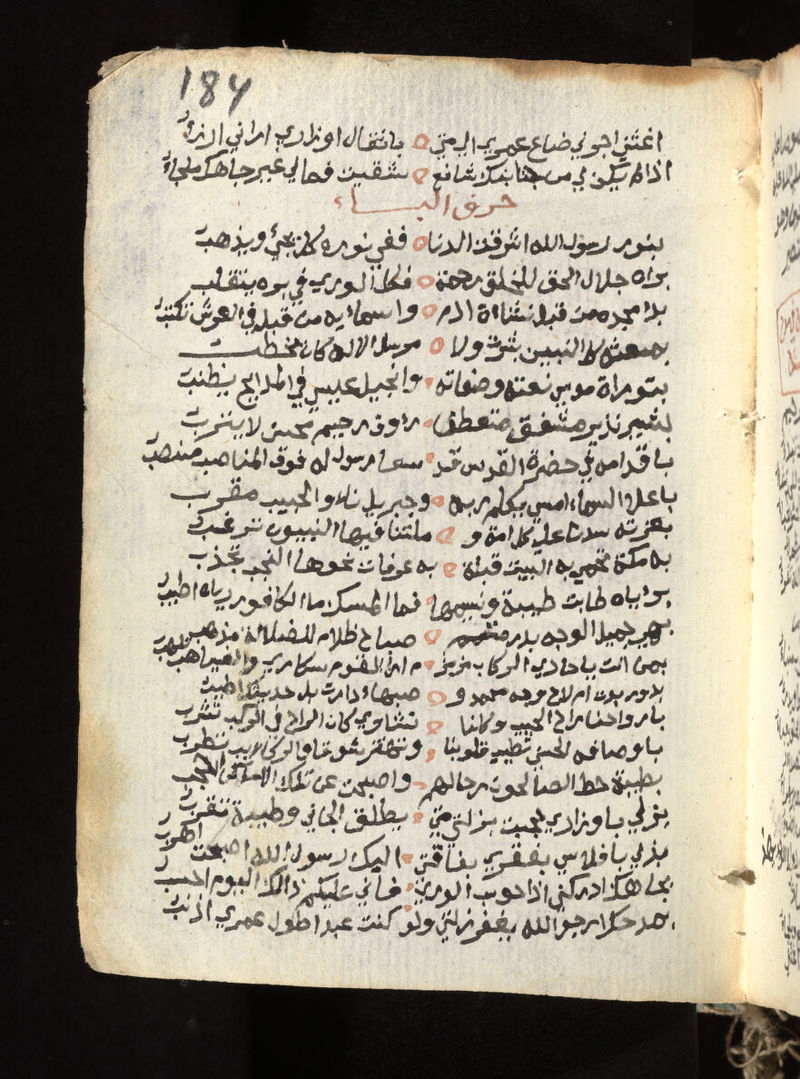 187
اغثني اجرني ضاع عمري الى متى ه باثقال اوزاري اراني ارزؤ
اذا لم يكن لي من جنابك شافع ه شقيت فمالي غير جاهك ملجاؤ
حرف الباء
بنور رسول الله اشرقت الدنا ه ففي نوره كل يجئ ويذهب
براه جلال الحق للخلق رحمة ه فكل الورى في بره يتقلب
بدا مجده من قبل نشاءة ادم ه واسماؤه من قبل في العرش تكتب
بمبعثه كل النبيين بشرت ولا ه مرسل الا له كان يخطب
بتوراة موسى نعته وصفاته ه وانجيل عيسى في المدايح يطنب
بشير نذير مشفق متعطف ه رؤف رحيم محسن لا يثرب
باقدامه في حضرة القدس قد ه سعا رسول له فوق المناصب منصب
باعلا السماء امسى يكلم ربه ه وجبريل ناء والحبيب مقرب
بعزته سدنا على كل امة و ه ملتنا فيها النبيون ترغب
به مكة تحمى به البيت قبلة ه به عرفات نحوها النجب تجذب
برياه طابت طيبة ونسيمها ه فما المسك ما الكافور رياه اطيب
بهي جميل الوجه بدر متمم ه صباح ظلام للضلالة مذهب
بمن انت يا حادي الركاب مزمزم ه ارى القوم سكارى والغياهب تلهب
بدور بدت ام لاح وجه محمد و ه صهباء دارت بل حديثك اطيب
بارواحنا راح الحبيب وكلنا ه نشاوى كان الراح في الركب تشرب
باوصافه الحسنى تطيب قلوبنا ه وتهتز شوقا والركايب تطرب
بطيبة حط الصالحون رحالهم ه واصبحت عن تلك الاماكن احجب
بزلي باوزاري حجبت بزلتي متى ه يطلق الجاني وطيبة تقرب
بذلي بافلاسي بفقري بفاقتي ه اليك رسول الله اصبحت اهرب
بجاهك ادركني اذا حوسب الورى ه فاني عليكم ذالك اليوم احسب
بمدحك ارجو الله يغفر زلتي ولو كنت عبدا طول عمري اذنب